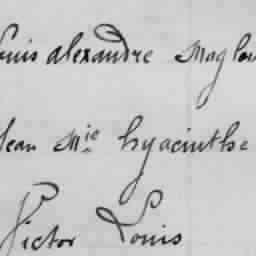 Louis alexandre Maglou
Jean Mie hyacinthe
Victor Louis